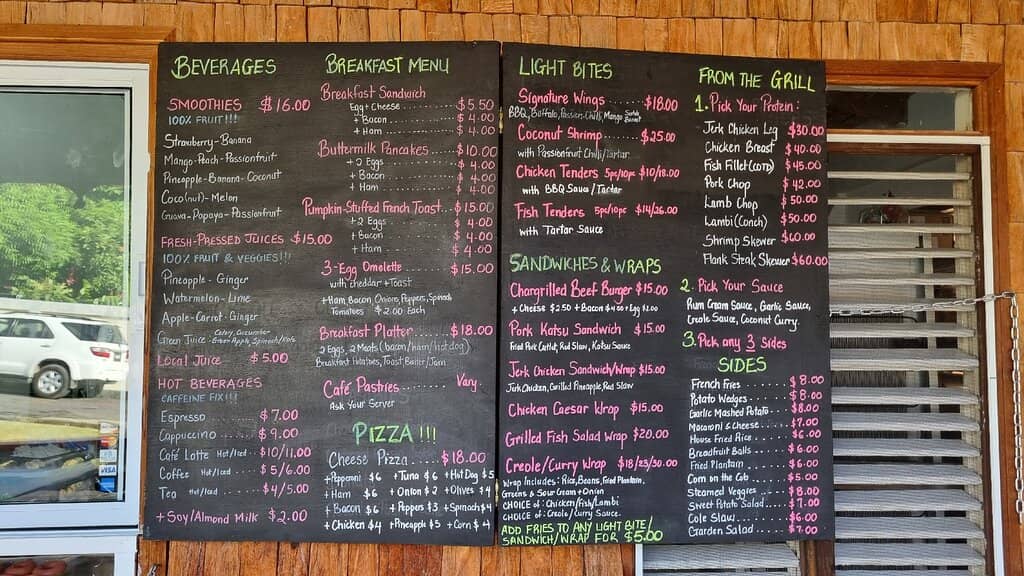 BEVERAGES
SMOOTHIES $16.00
100% FRUIT!!!
Strawberry-Banana
Mango-Peach-Passionfruit
Pineapple-Banana-Coconut
Coco(nut)-Melon
Guava-Papaya-Passionfruit
FRESH-PRESSED JUICES $15.00
100% FRUIT & VEGGIES!!!
Pineapple-Ginger
Watermelon-Lime
Apple-Carrot-Ginger
Green Juice-Celery, Cucumber
Green Apple, Spinach/Kale
Local Juice $5.00
HOT BEVERAGES
CAFFEINE FIX!!!
Espresso $7.00
Cappuccino $9.00
Café Latte Hot/Iced $10/11.00
Coffee Hot/Iced $5/6.00
Tea Hot/Iced $4/5.00
+Soy/Almond Milk $2.00
BREAKFAST MENU
Breakfast Sandwich
Egg+Cheese $5.50
+Bacon $4.00
+Ham $4.00
Buttermilk Pancakes $10.00
+2 Eggs $4.00
+Bacon $4.00
+Ham $4.00
Pumpkin-Stuffed French Toast $15.00
+2 Eggs $4.00
+Bacon $4.00
+Ham $4.00
3-Egg Omelette $15.00
with cheddar+Toast
+Ham, Bacon, Onions, Peppers, Spinach
Tomatoes $2.00 Each
Breakfast Platter $18.00
2 Eggs, 2 Meats (bacon/ham/hot dog)
Breakfast Potatoes, Toast, Butter/Jam
Café Pastries Vary.
Ask Your Server
PIZZA!!!
Cheese Pizza $18.00
+Pepperoni $6 +Tuna $6 +Hot Dog $5
+Ham $6 +Onion $2 +Olives $4
+Bacon $6 +Peppers $3 +Spinach $4
+Chicken $4 +Pineapple $5 +Corn $4
LIGHT BITES
Signature Wings $18.00
BBQ, Buffalo, Passion-Chilli, Mango
Coconut Shrimp $25.00
with Passionfruit Chili/Tartar
Chicken Tenders 5pc/10pc $10/18.00
with BBQ Sauce/Tartar
Fish Tenders 5pc/10pc $14/26.00
with Tartar Sauce
SANDWICHES & WRAPS
Chargrilled Beef Burger $15.00
+Cheese $2.50 +Bacon $4.00 +Egg $2.00
Pork Katsu Sandwich $15.00
Fried Pork Cutlet, Red Slaw, Katsu Sauce
Jerk Chicken Sandwich/Wrap $15.00
Jerk Chicken, Grilled Pineapple, Red Slaw
Chicken Caesar Wrap $15.00
Grilled Fish Salad Wrap $20.00
Creole/Curry Wrap $18/25/30.00
Wrap Includes: Rice, Beans, Fried Plantain,
Greens & Sour Cream+Onion
CHOICE of: Chicken/Fish/Lambi
CHOICE of: Creole/Curry Sauce.
ADD FRIES TO ANY LIGHT BITE/
SANDWICH/WRAP FOR $5.00
FROM THE GRILL
1. Pick Your Protein:
Jerk Chicken Leg $30.00
Chicken Breast $40.00
Fish Fillet(COTD) $45.00
Pork Chop $42.00
Lamb Chop $50.00
Lambi(Conch) $50.00
Shrimp Skewer $60.00
Flank Steak Skewer $60.00
2. Pick Your Sauce
Rum Cream Sauce, Garlic Sauce,
Creole Sauce, Coconut Curry.
3. Pick any 3 Sides
SIDES
French Fries $8.00
Potato Wedges $8.00
Garlic Mashed Potato $8.00
Macaroni & Cheese $7.00
House Fried Rice $6.00
Breadfruit Balls $6.00
Fried Plantain $6.00
Corn on the Cob $5.00
Steamed Veggies $8.00
Sweet Potato Salad $7.00
Cole Slaw $6.00
Garden Salad $7.00
VISA